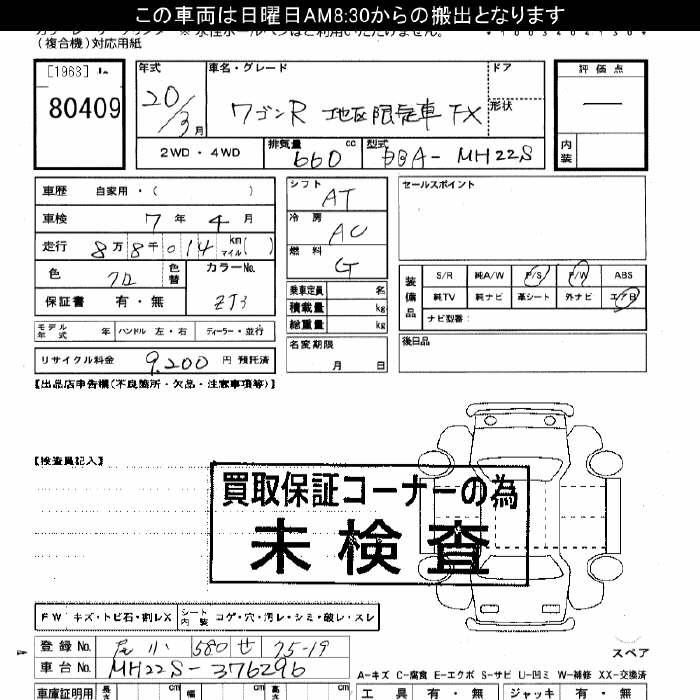 この車両は日曜日AM8:30からの搬出となります
(複合機)対応用紙
[1963]
80409
年式
20/3月
車名・グレード
ワゴンR 地区限定車 FX
ドア
形状
評価点
内装
2WD・4WD
排気量 660 cc
型式 DBA-MH22S
車歴 自家用・( )
車検 7年 4月
走行 8万8千014 km マイル( )
色 クロ 色替
カラーNo. ZJ3
保証書 有・無
シフト AT
冷房 AC
燃料 G
乗車定員 名
積載量 kg
総重量 kg
セールスポイント
装備品
S/R 純A/W P/S P/W ABS
純TV 純ナビ 革シート 外ナビ エアB
ナビ型番:
モデル年式 年 ハンドル 左・右 ディーラー・並行
リサイクル料金 9,200 円 預託済
名変期限 月 日
後日品
【出品店申告欄(不良箇所・欠品・注意事項等)】
【検査員記入】
買取保証コーナーの為
未検査
FW キズ・トビ石・割レX
シート内装 コゲ・穴・汚レ・シミ・破レ・スレ
登録No. 尾小 580 せ 75-19
車台No. MH22S-376296
スペア
A-キズ C-腐食 E-エクボ S-サビ U-凹ミ W-補修 XX-交換済
車庫証明用 長さ cm 幅 cm 高さ cm
工具 有・無 ジャッキ 有・無